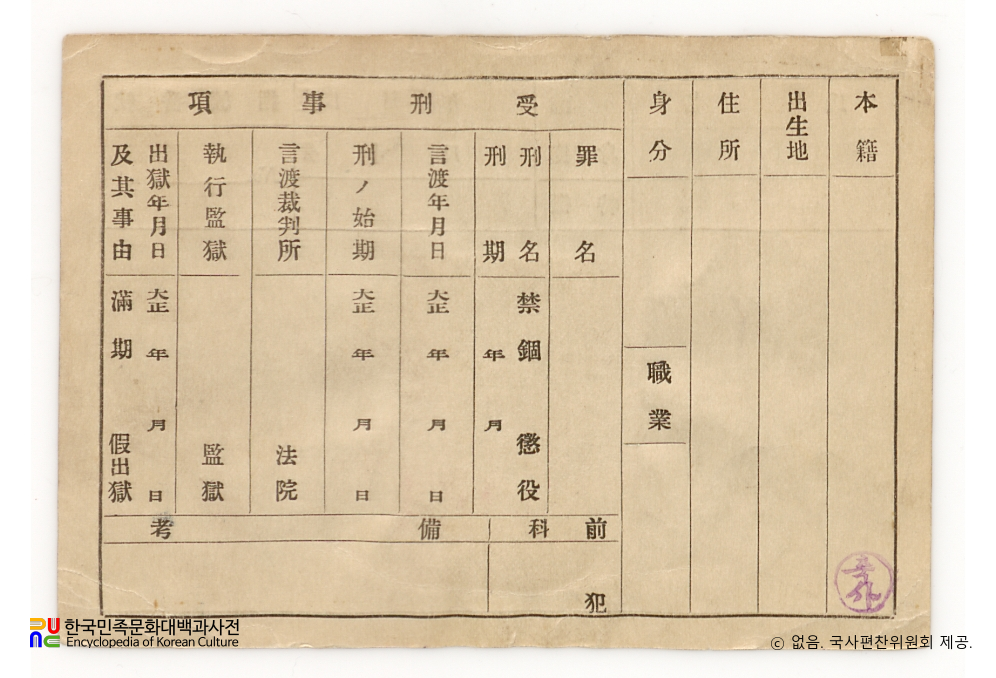 本籍
出生地
住所
身分
職業
受刑事項
罪名
刑名
禁錮
懲役
刑期
年
月
言渡年月日
大正
年
月
日
刑ノ始期
大正
年
月
日
言渡裁判所
法院
執行監獄
監獄
出獄年月日
及其事由
大正
年
月
日
滿期
假出獄
前科
備考
犯
한국민족문화대백과사전
Encyclopedia of Korean Culture
ⓒ 없음. 국사편찬위원회 제공.